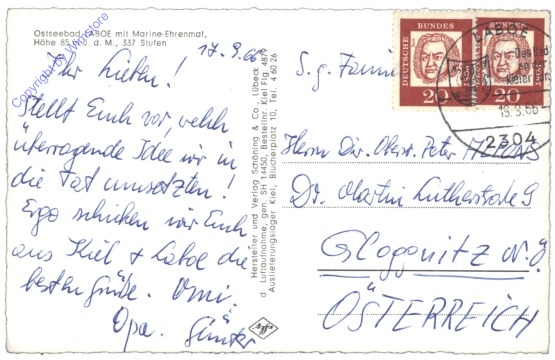 Ostseebad LABOE mit Marine-Ehrenmal,
Höhe 85 m ü. d. M., 337 Stufen
17.9.66
Ihr Lieben!
Stellt Euch vor welch
überragende Idee wir in
die Tat umsetzten!
Ergo schicken wir Euch
aus Kiel + Laboe die
besten Grüße. Omi.
Opa. Günter
Hersteller und Verlag Schöning & Co., Lübeck
Luftaufnahme, gen. SH 14450, Bestellnr. Kiel Flg. 4879
Auslieferungslager Kiel, Blücherplatz 10, Tel. 4 60 26
Agfa
DEUTSCHE BUNDESPOST
20
DEUTSCHE BUNDESPOST
20
LABOE
Das Bad
Kieler
2304
S. g. Familie
Herrn Dir. Oberst. Peter
Dr. Martin Lutherstraße 9
Gloggnitz N.Ö
ÖSTERREICH
Copyright by Wnrstore